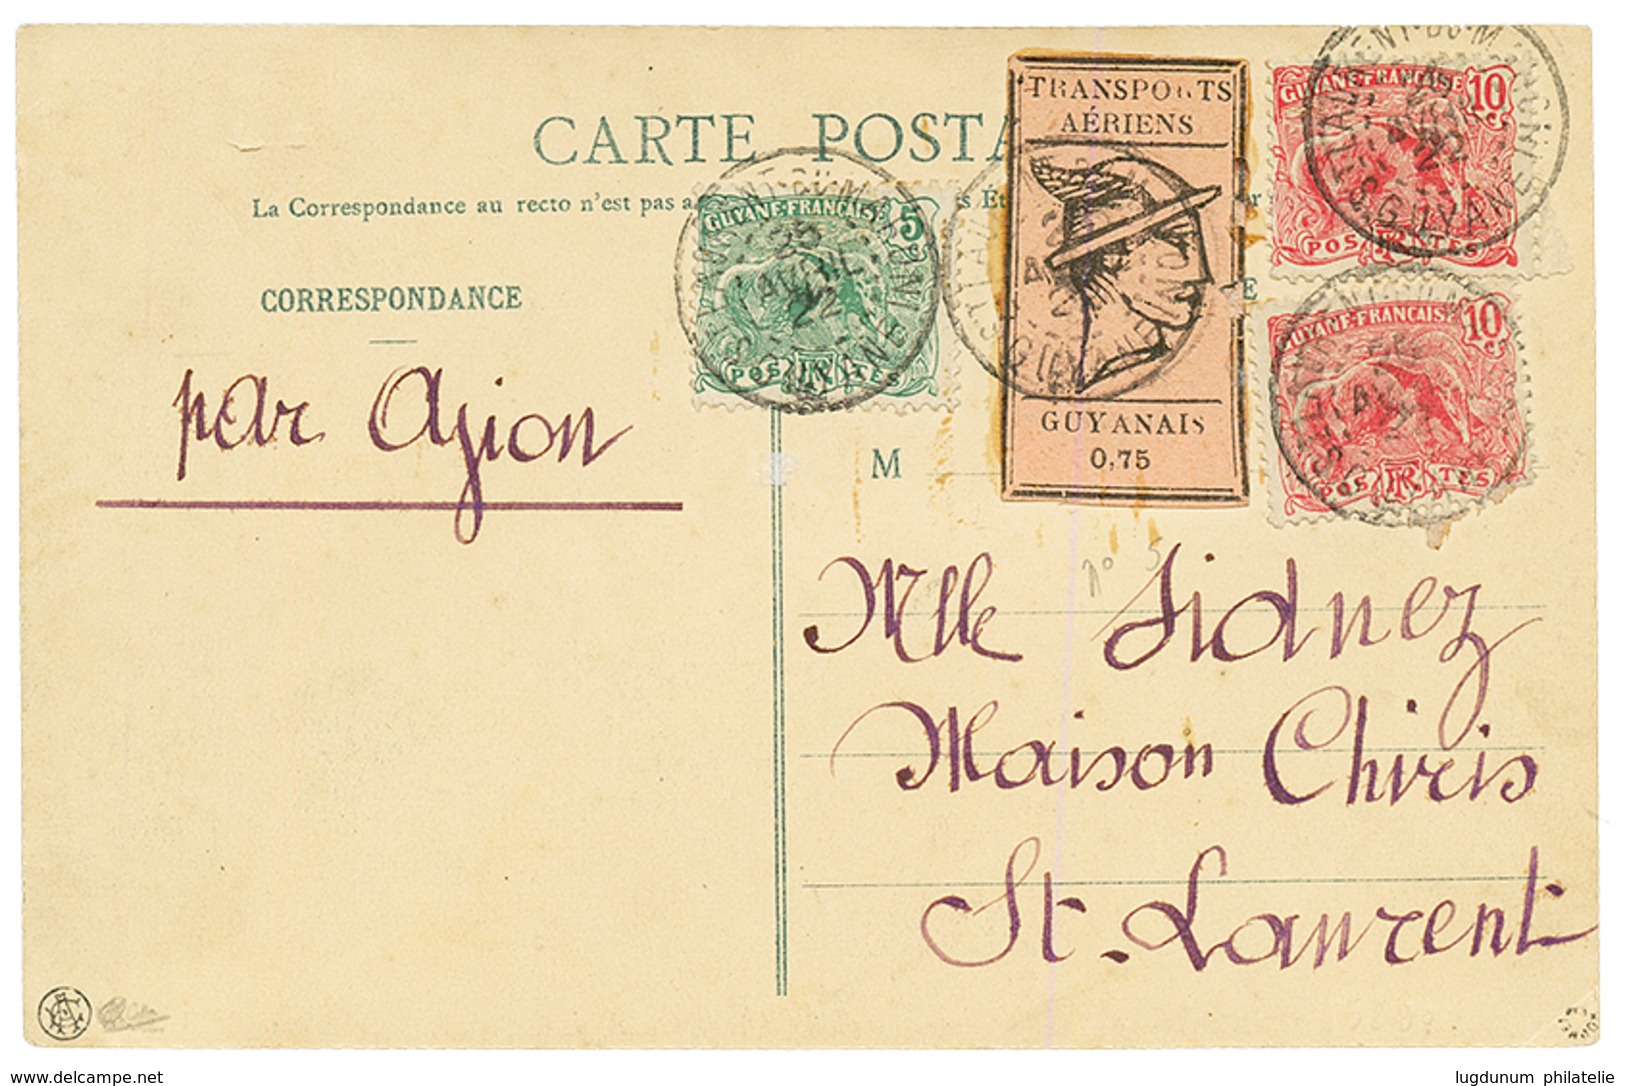 CARTE POSTA
La Correspondance au recto n'est pas a
CORRESPONDANCE
par Avion
GUYANE FRANÇAISE 5
POSTES
22
TRANSPORTS
AÉRIENS
GUYANAIS
0,75
GUYANE FRANÇAISE 10
POSTES
GUYANE FRANÇAISE 10
POSTES
M
no 5
Mlle Sidnez
Maison Chiris
St. Laurent
www.delcampe.net
lugdunum philatelie